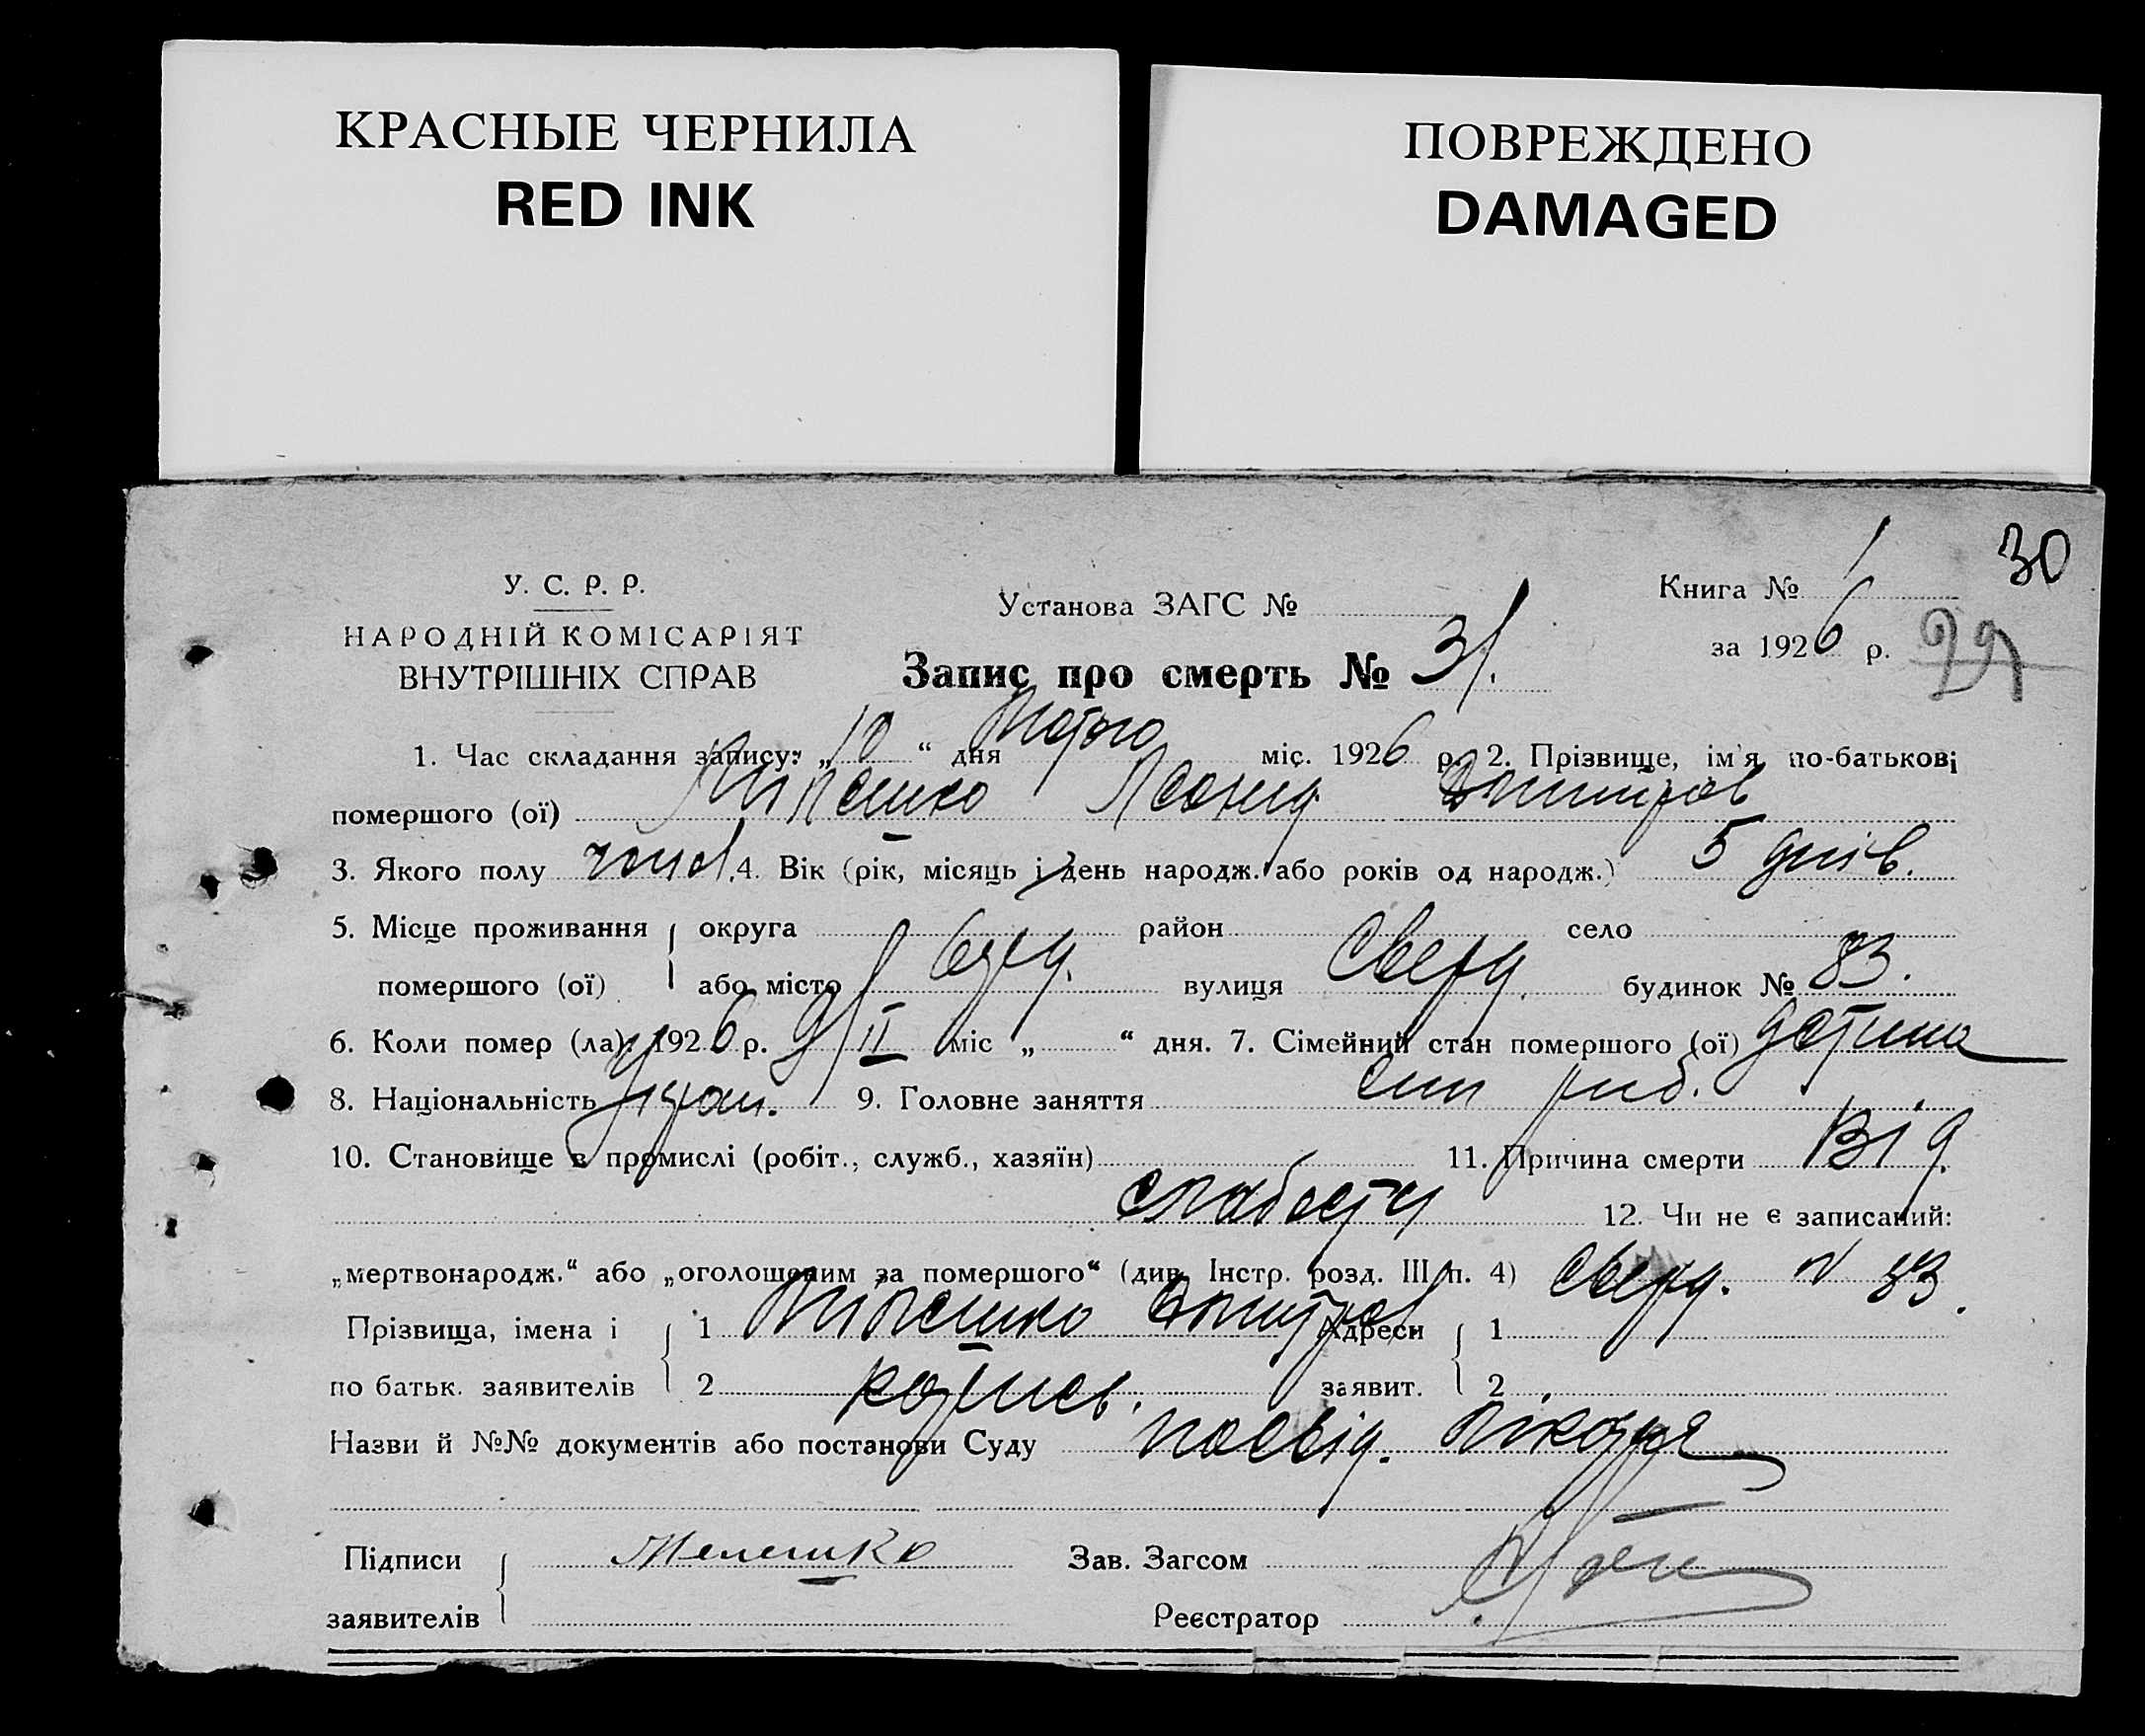 КРАСНЫЕ ЧЕРНИЛА
RED INK
ПОВРЕЖДЕНО
DAMAGED
30
У. С. Р. Р.
НАРОДНІЙ КОМІСАРІЯТ
ВНУТРІШНІХ СПРАВ
Установа ЗАГС №
Книга № 1
за 1926 р. 29
Запис про смерть № 31.
1. Час складання запису: „10“ дня Лютого міс. 1926 р. 2. Прізвище, ім'я, по-батькові
помершого (ої) Леонид
3. Якого полу чол. 4. Вік (рік, місяць і день народж. або років од народж.) 5 днів.
5. Місце проживання округа район село
помершого (ої) або місто вулиця Сверд. будинок № 83.
6. Коли помер (ла): 1926 р. 9/II міс „ “ дня. 7. Сімейний стан помершого (ої) детина
8. Національність Укран. 9. Головне заняття син
10. Становище в промислі (робіт., служб., хазяїн) 11. Причина смерти від
слабости 12. Чи не є записаний:
„мертвонародж.“ або „оголошеним за помершого“ (див. Інстр. розд. III п. 4) Сверд. № 83.
Прізвища, імена і 1 Адреси 1
по батьк. заявителів 2 заявит. 2
Назви й №№ документів або постанови Суду посвід. лікаря
Підписи Мелешко Зав. Загсом
заявителів Реєстратор